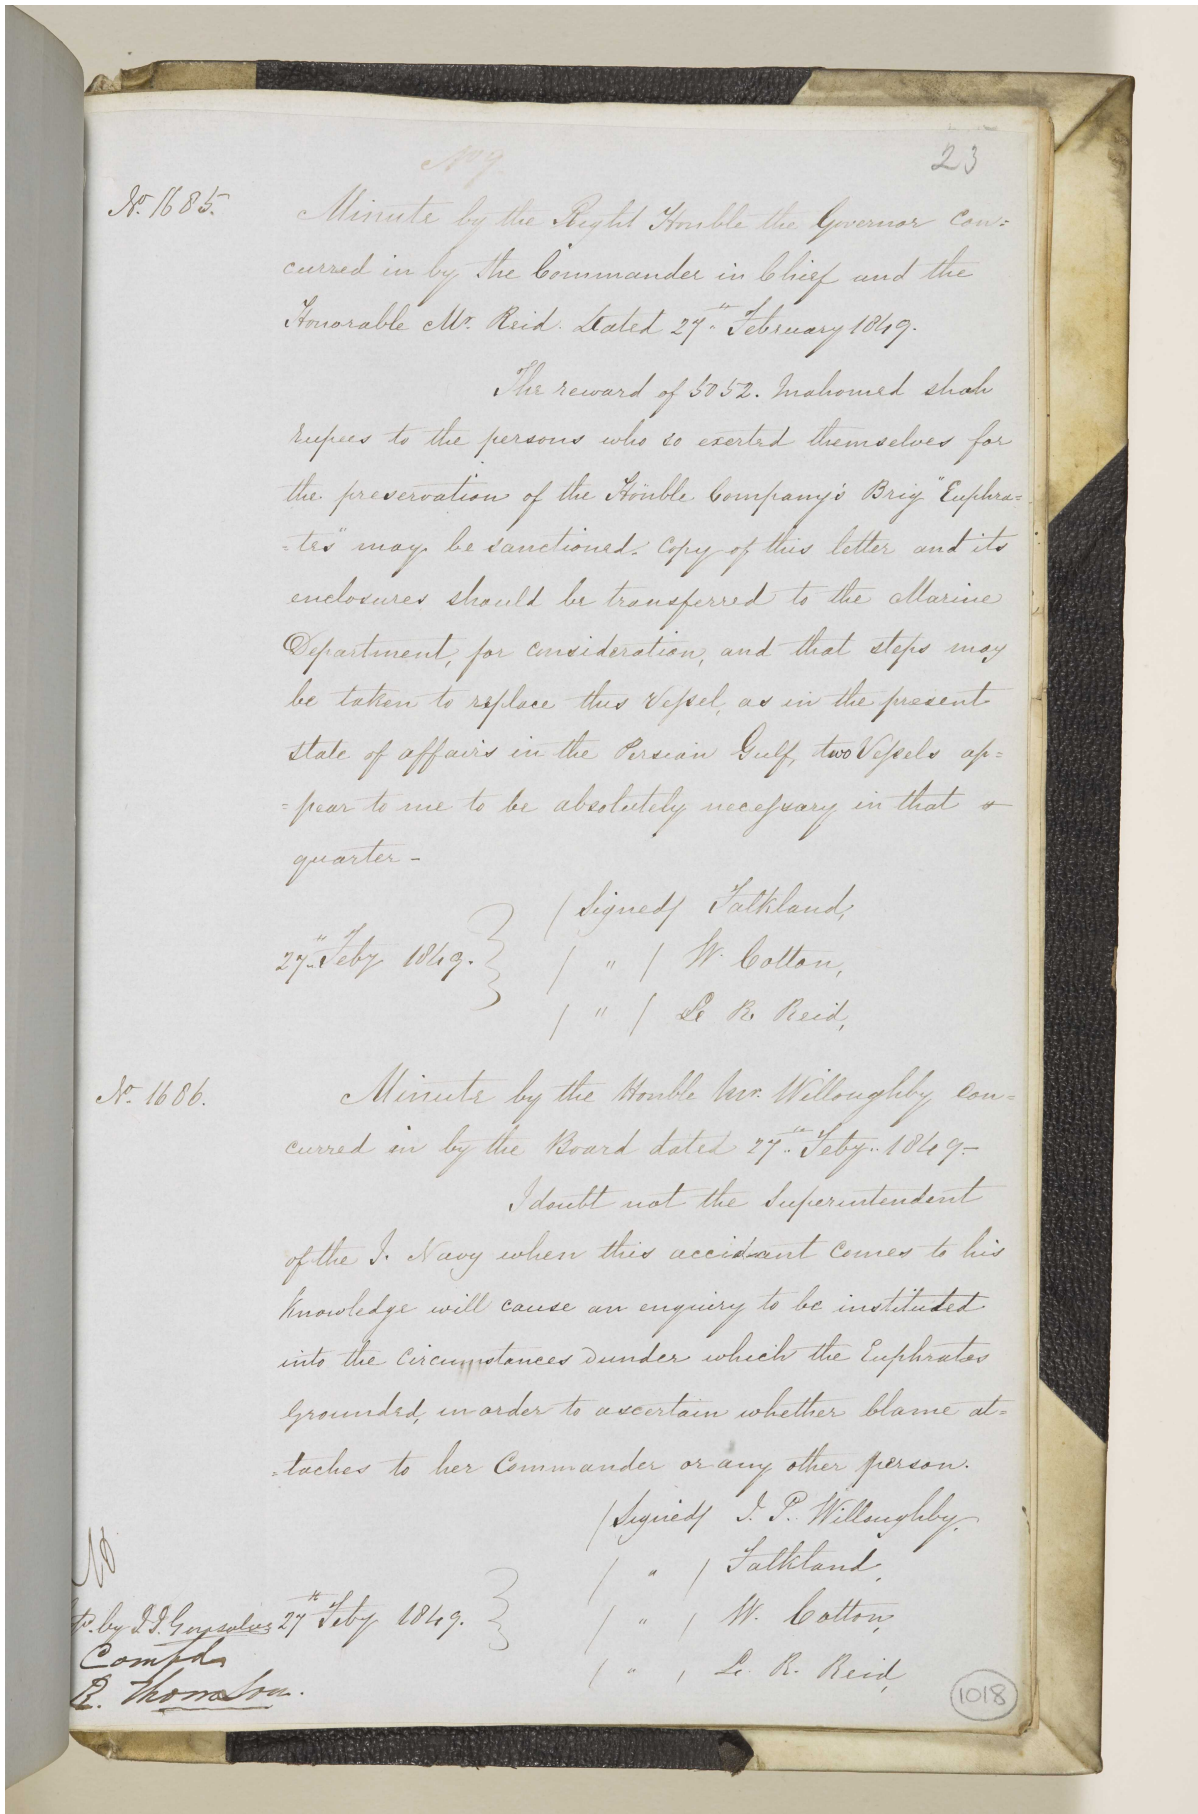 23
No 7
No. 1685.
Minute by the Right Honble the Governor con=
curred in by the Commander in Chief and the
Honorable Mr. Reid. Dated 27th February 1849.
The reward of 5052. Mahomed shah
rupees to the persons who so exerted themselves for
the preservation of the Honble Company's Brig "Euphra=
=tes" may be sanctioned. Copy of this letter and its
enclosures should be transferred to the Marine
Department, for consideration, and that steps may
be taken to replace this Vessel, as in the present
state of affairs in the Persian Gulf, two Vessels ap=
=pear to me to be absolutely necessary in that
quarter -
(Signed) Falkland,
27th Feby 1849. ( " ) W. Cotton,
( " ) L. R. Reid,
No. 1686.
Minute by the Honble Mr. Willoughby con=
curred in by the Board dated 27th Feby. 1849 -
I doubt not the Superintendent
of the I. Navy when this accidant comes to his
knowledge will cause an enquiry to be instituted
into the circumstances under which the Euphrates
Grounded, in order to ascertain whether blame at=
=taches to her Commander or any other person.
(Signed) J. P. Willoughby,
( " ) Falkland,
27th Feby 1849. ( " ) W. Cotton,
( " ) L. R. Reid,
by J. J. Gonsalves
Compd
R. Thomson.
1018